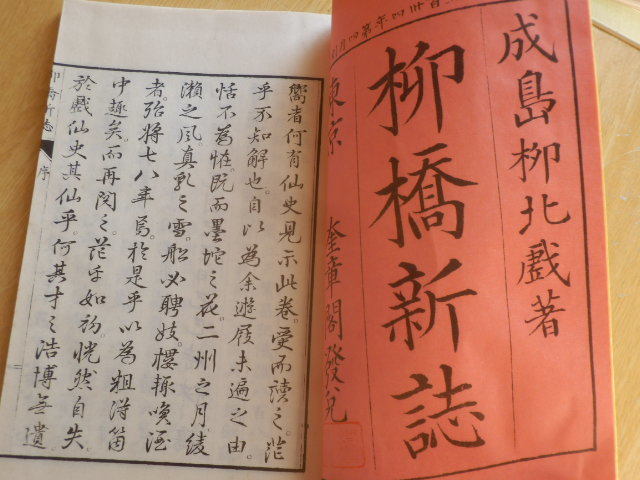 百卅四年第四月
成島柳北戲著
柳橋新誌
東京 奎章閣發兌
嚮者何有仙史見示此卷。受而讀之。茫
乎不知解也。自以為余遊屐未遍之由。
恬不為怪。既而墨坨之花。二州之月。綾
瀬之風。真乳之雪。船必聘妓。樓輙喚酒
者。殆將七八年焉。於是乎以為粗得箇
中趣矣。而再閱之。茫乎如初。恍然自失。
於戲仙史其仙乎。何其才之浩博無遺
序